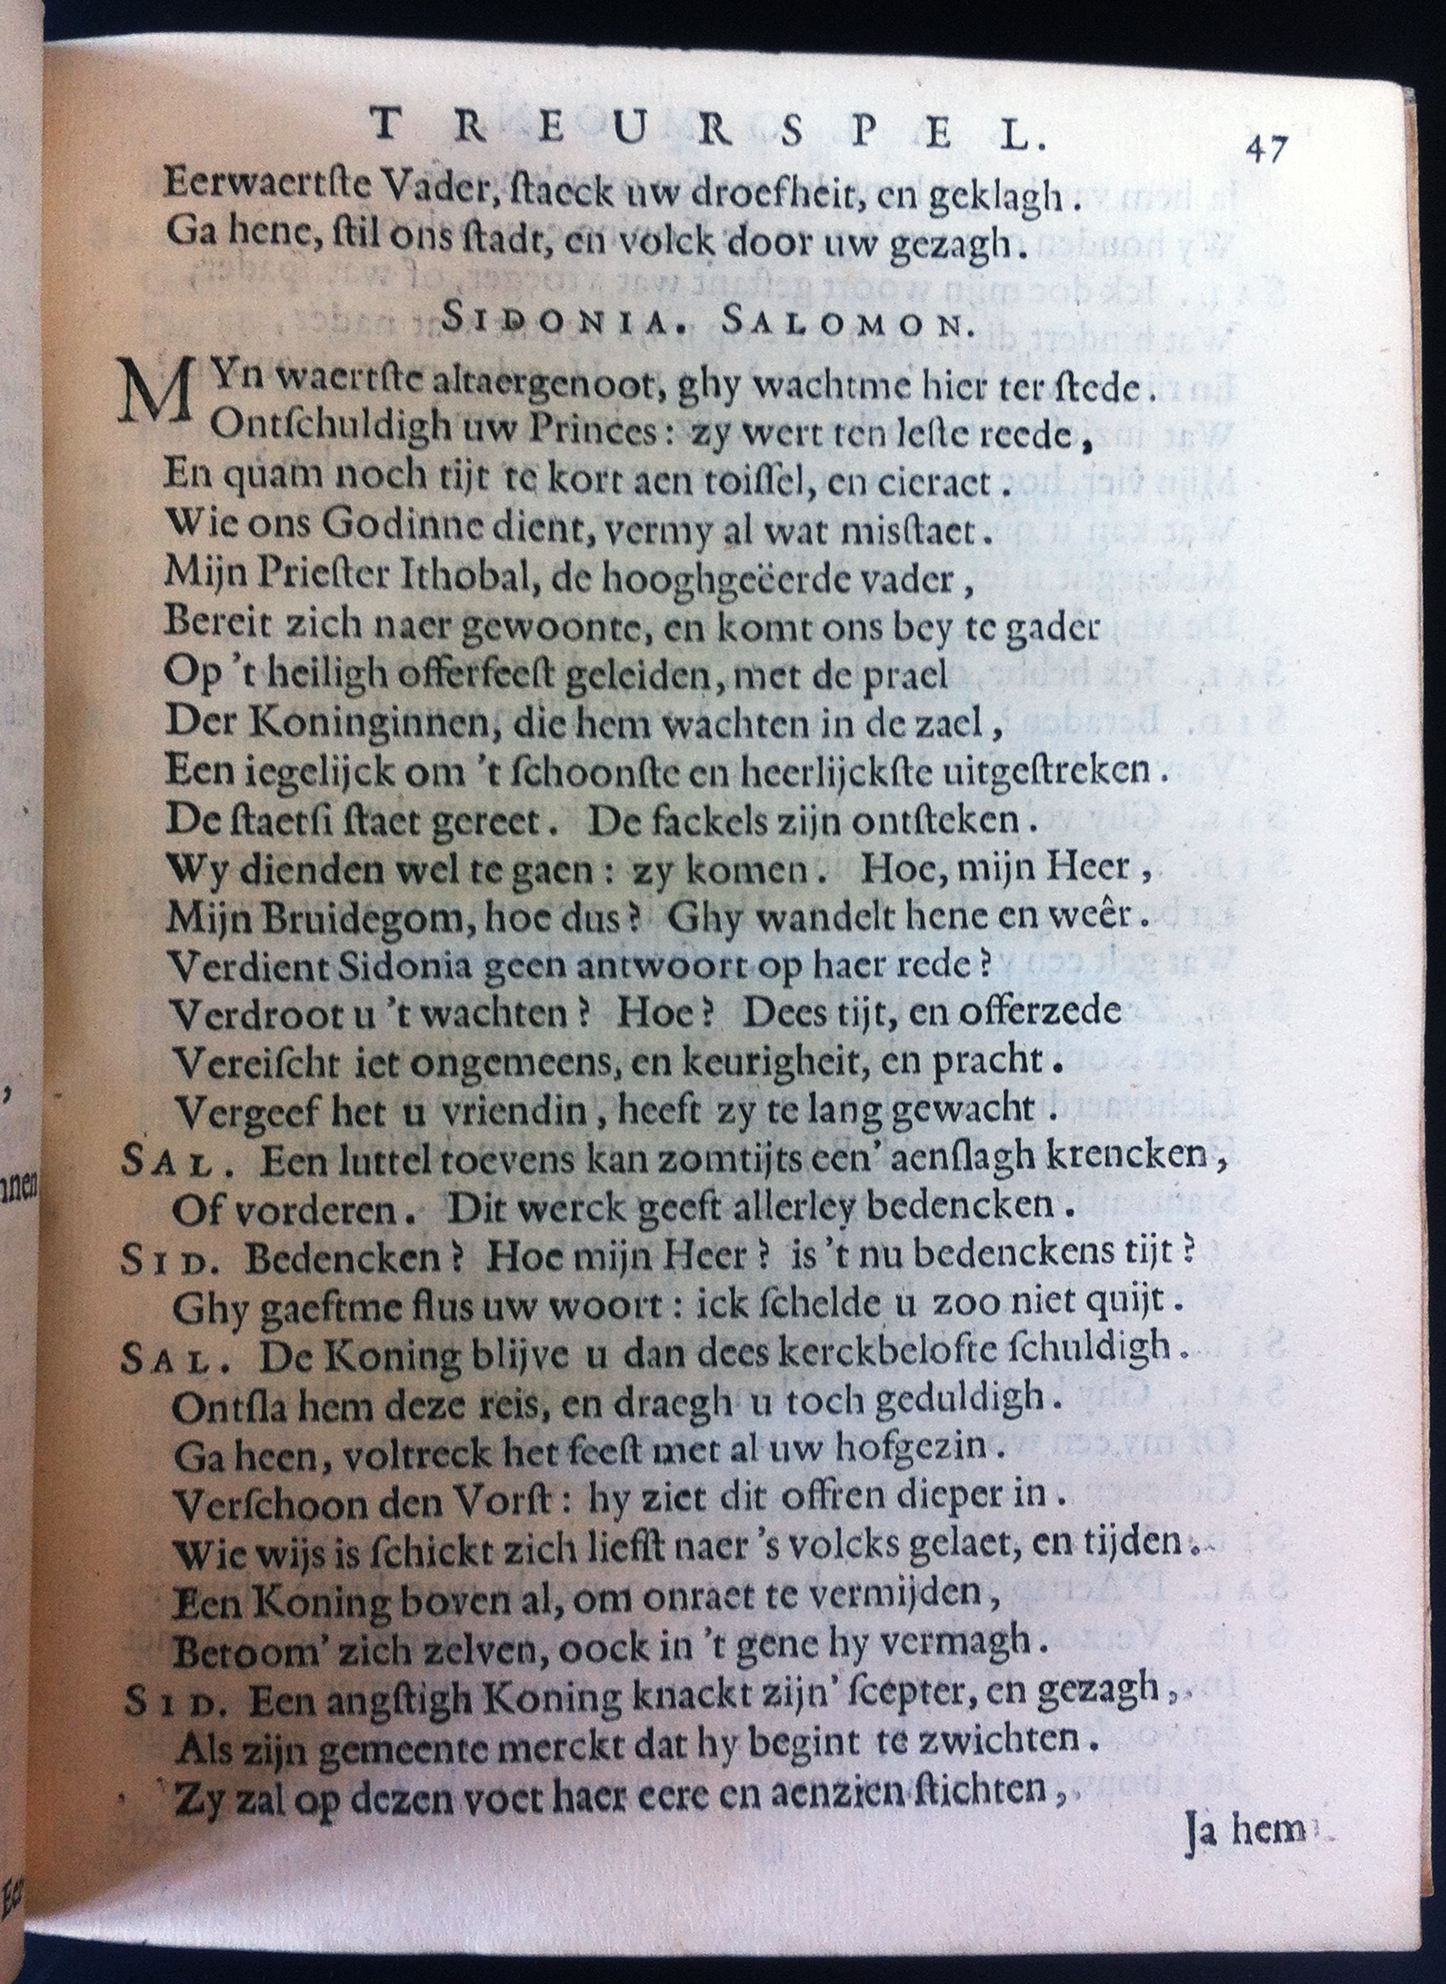 TREURSPEL. 47
Eerwaertſte Vader, ſtaeck uw droefheit, en geklagh.
Ga hene, ſtil ons ſtadt, en volck door uw gezagh.
SIDONIA. SALOMON.
MYn waertſte altaergenoot, ghy wachtme hier ter ſtede.
Ontſchuldigh uw Princes: zy wert ten leſte reede,
En quam noch tijt te kort aen toiſſel, en cieraet.
Wie ons Godinne dient, vermy al wat misſtaet.
Mijn Prieſter Ithobal, de hooghgeëerde vader,
Bereit zich naer gewoonte, en komt ons bey te gader
Op 't heiligh offerfeeſt geleiden, met de prael
Der Koninginnen, die hem wachten in de zael,
Een iegelijck om 't ſchoonſte en heerlijckſte uitgeſtreken.
De ſtaetſi ſtaet gereet. De fackels zijn ontſteken.
Wy dienden wel te gaen: zy komen. Hoe, mijn Heer,
Mijn Bruidegom, hoe dus? Ghy wandelt hene en weêr.
Verdient Sidonia geen antwoort op haer rede?
Verdroot u 't wachten? Hoe? Dees tijt, en offerzede
Vereiſcht iet ongemeens, en keurigheit, en pracht.
Vergeef het u vriendin, heeft zy te lang gewacht.
SAL. Een luttel toevens kan zomtijts een' aenſlagh krencken,
Of vorderen. Dit werck geeft allerley bedencken.
SID. Bedencken? Hoe mijn Heer? is 't nu bedenckens tijt?
Ghy gaeftme flus uw woort: ick ſchelde u zoo niet quijt.
SAL. De Koning blijve u dan dees kerckbelofte ſchuldigh.
Ontſla hem deze reis, en draegh u toch geduldigh.
Ga heen, voltreck het feeſt met al uw hofgezin.
Verſchoon den Vorſt: hy ziet dit offren dieper in.
Wie wijs is ſchickt zich liefſt naer 's volcks gelaet, en tijden.
Een Koning boven al, om onraet te vermijden,
Betoom' zich zelven, oock in 't gene hy vermagh.
SID. Een angſtigh Koning knackt zijn' ſcepter, en gezagh,
Als zijn gemeente merckt dat hy begint te zwichten.
Zy zal op dezen voet haer eere en aenzien ſtichten,
Ja hem